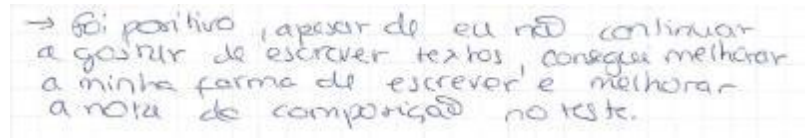 → foi positivo, apesar de eu não continuar
a gostar de escrever textos, consegui melhorar
a minha forma de escrever e melhorar
a nota de composição no teste.